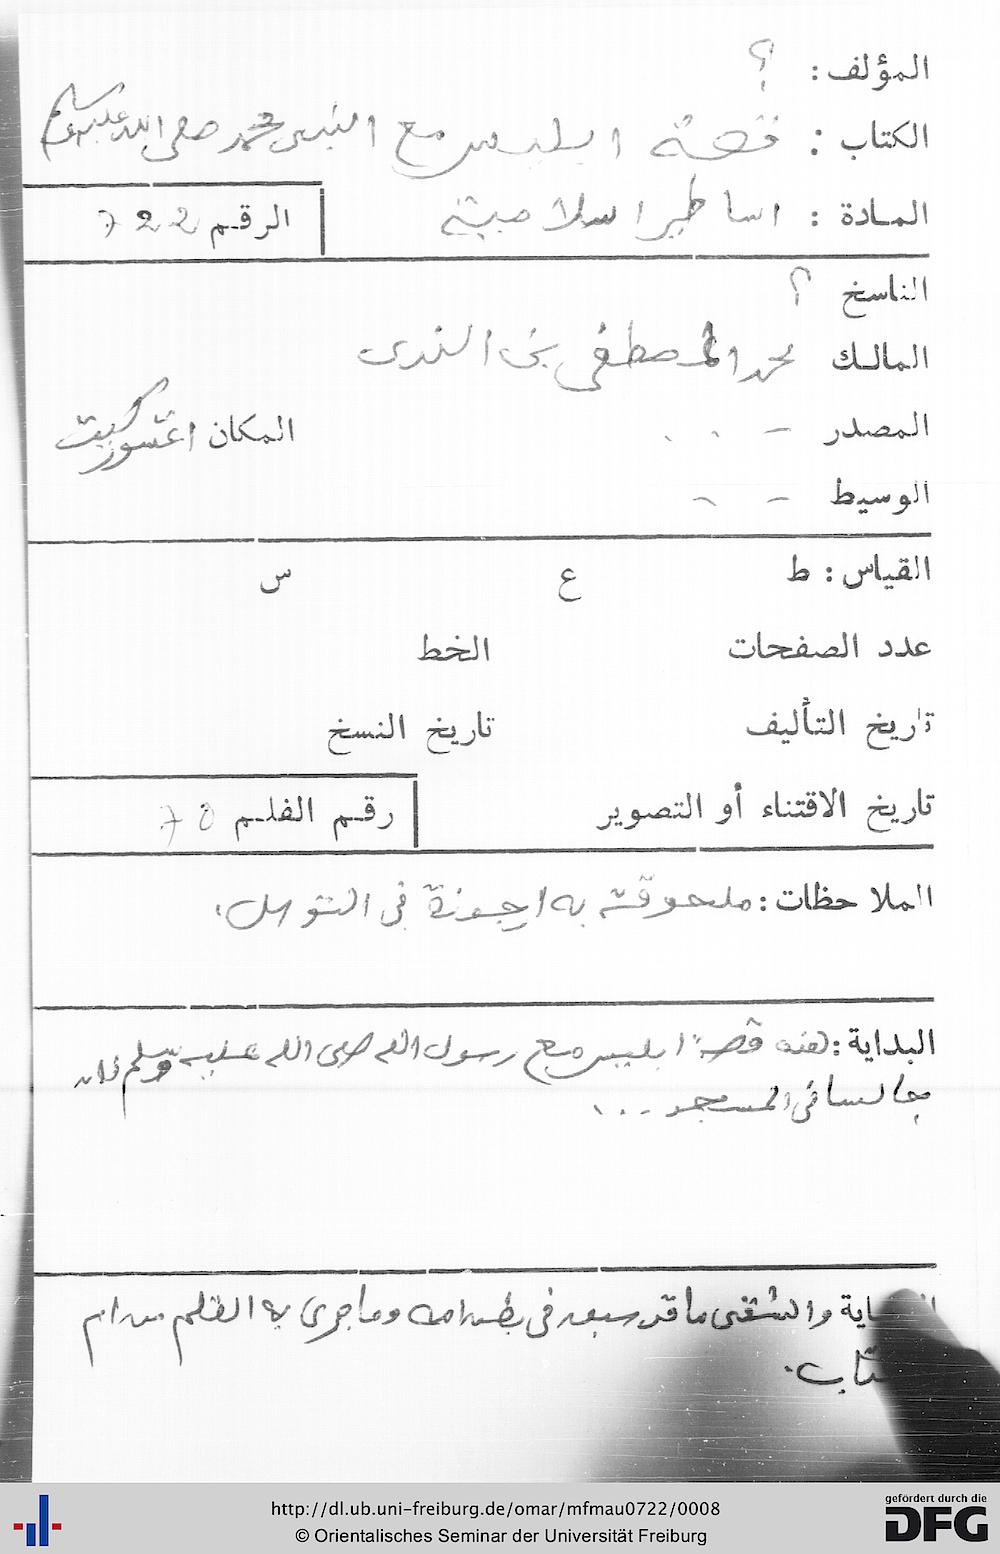 المؤلف : ؟
الكتاب : قصة ابليس مع النبي محمد صلى الله عليه وسلم
المادة : اساطير اسلامية
الرقم 722
الناسخ ؟
المالك محمد المصطفى بن الندى
المصدر - . .
المكان
الوسيط - -
القياس : ط ع س
عدد الصفحات الخط
تاريخ التأليف تاريخ النسخ
تاريخ الاقتناء أو التصوير
رقم الفلم
الملاحظات : ملحوقة به في التوسل.
البداية : هذه قصة ابليس مع رسول الله صلى الله عليه وسلم كان
جالسا في المسجد ...
والشقى ما قد سبعد في بطن امه وما جرى به القلم من ام
http://dl.ub.uni-freiburg.de/omar/mfmau0722/0008
© Orientalisches Seminar der Universität Freiburg
gefördert durch die
DFG